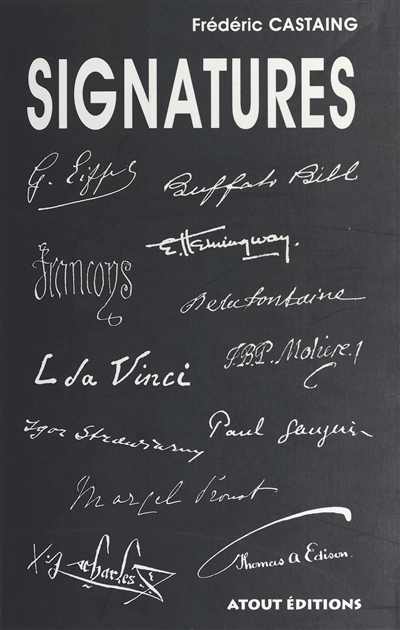 Frédéric CASTAING
SIGNATURES
G. Eiffel
Buffalo Bill
E. Hemingway.
Francoys
De la fontaine
J.B.P. Moliere
L da Vinci
Igor Strawinsky
Paul Gauguin
Marcel Proust
Charles
Thomas A Edison
ATOUT ÉDITIONS